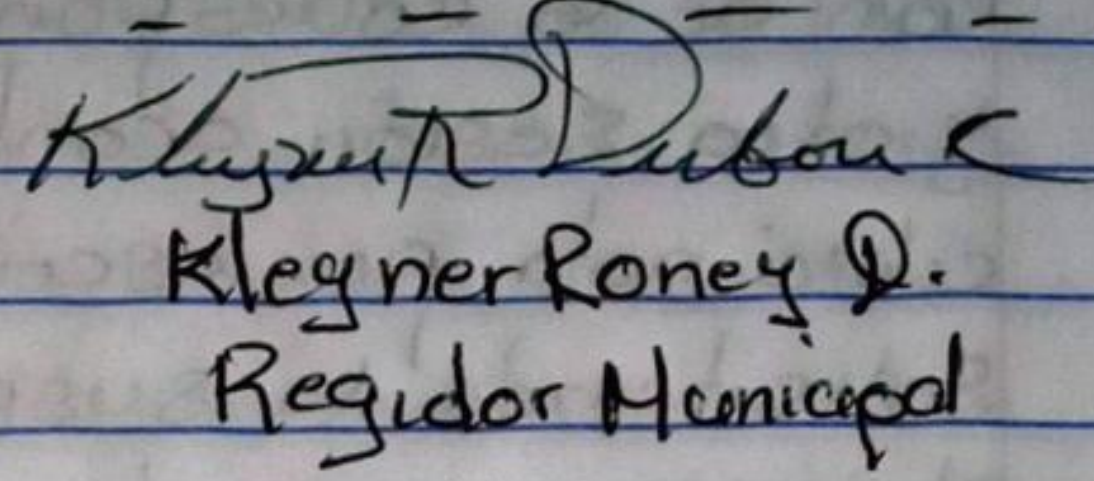 Klegner R Dubon C
Klegner Roney D.
Regidor Municipal